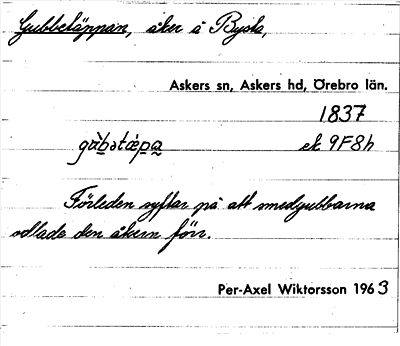 Gubbetäppan, åker å Bysta,
Askers sn, Askers hd, Örebro län.
1837
gu̇̀b̬ətǽpa̬ ek 9F8h
Förleden syftar på att smedgubbarna
odlade den åkern förr.
Per-Axel Wiktorsson 1963